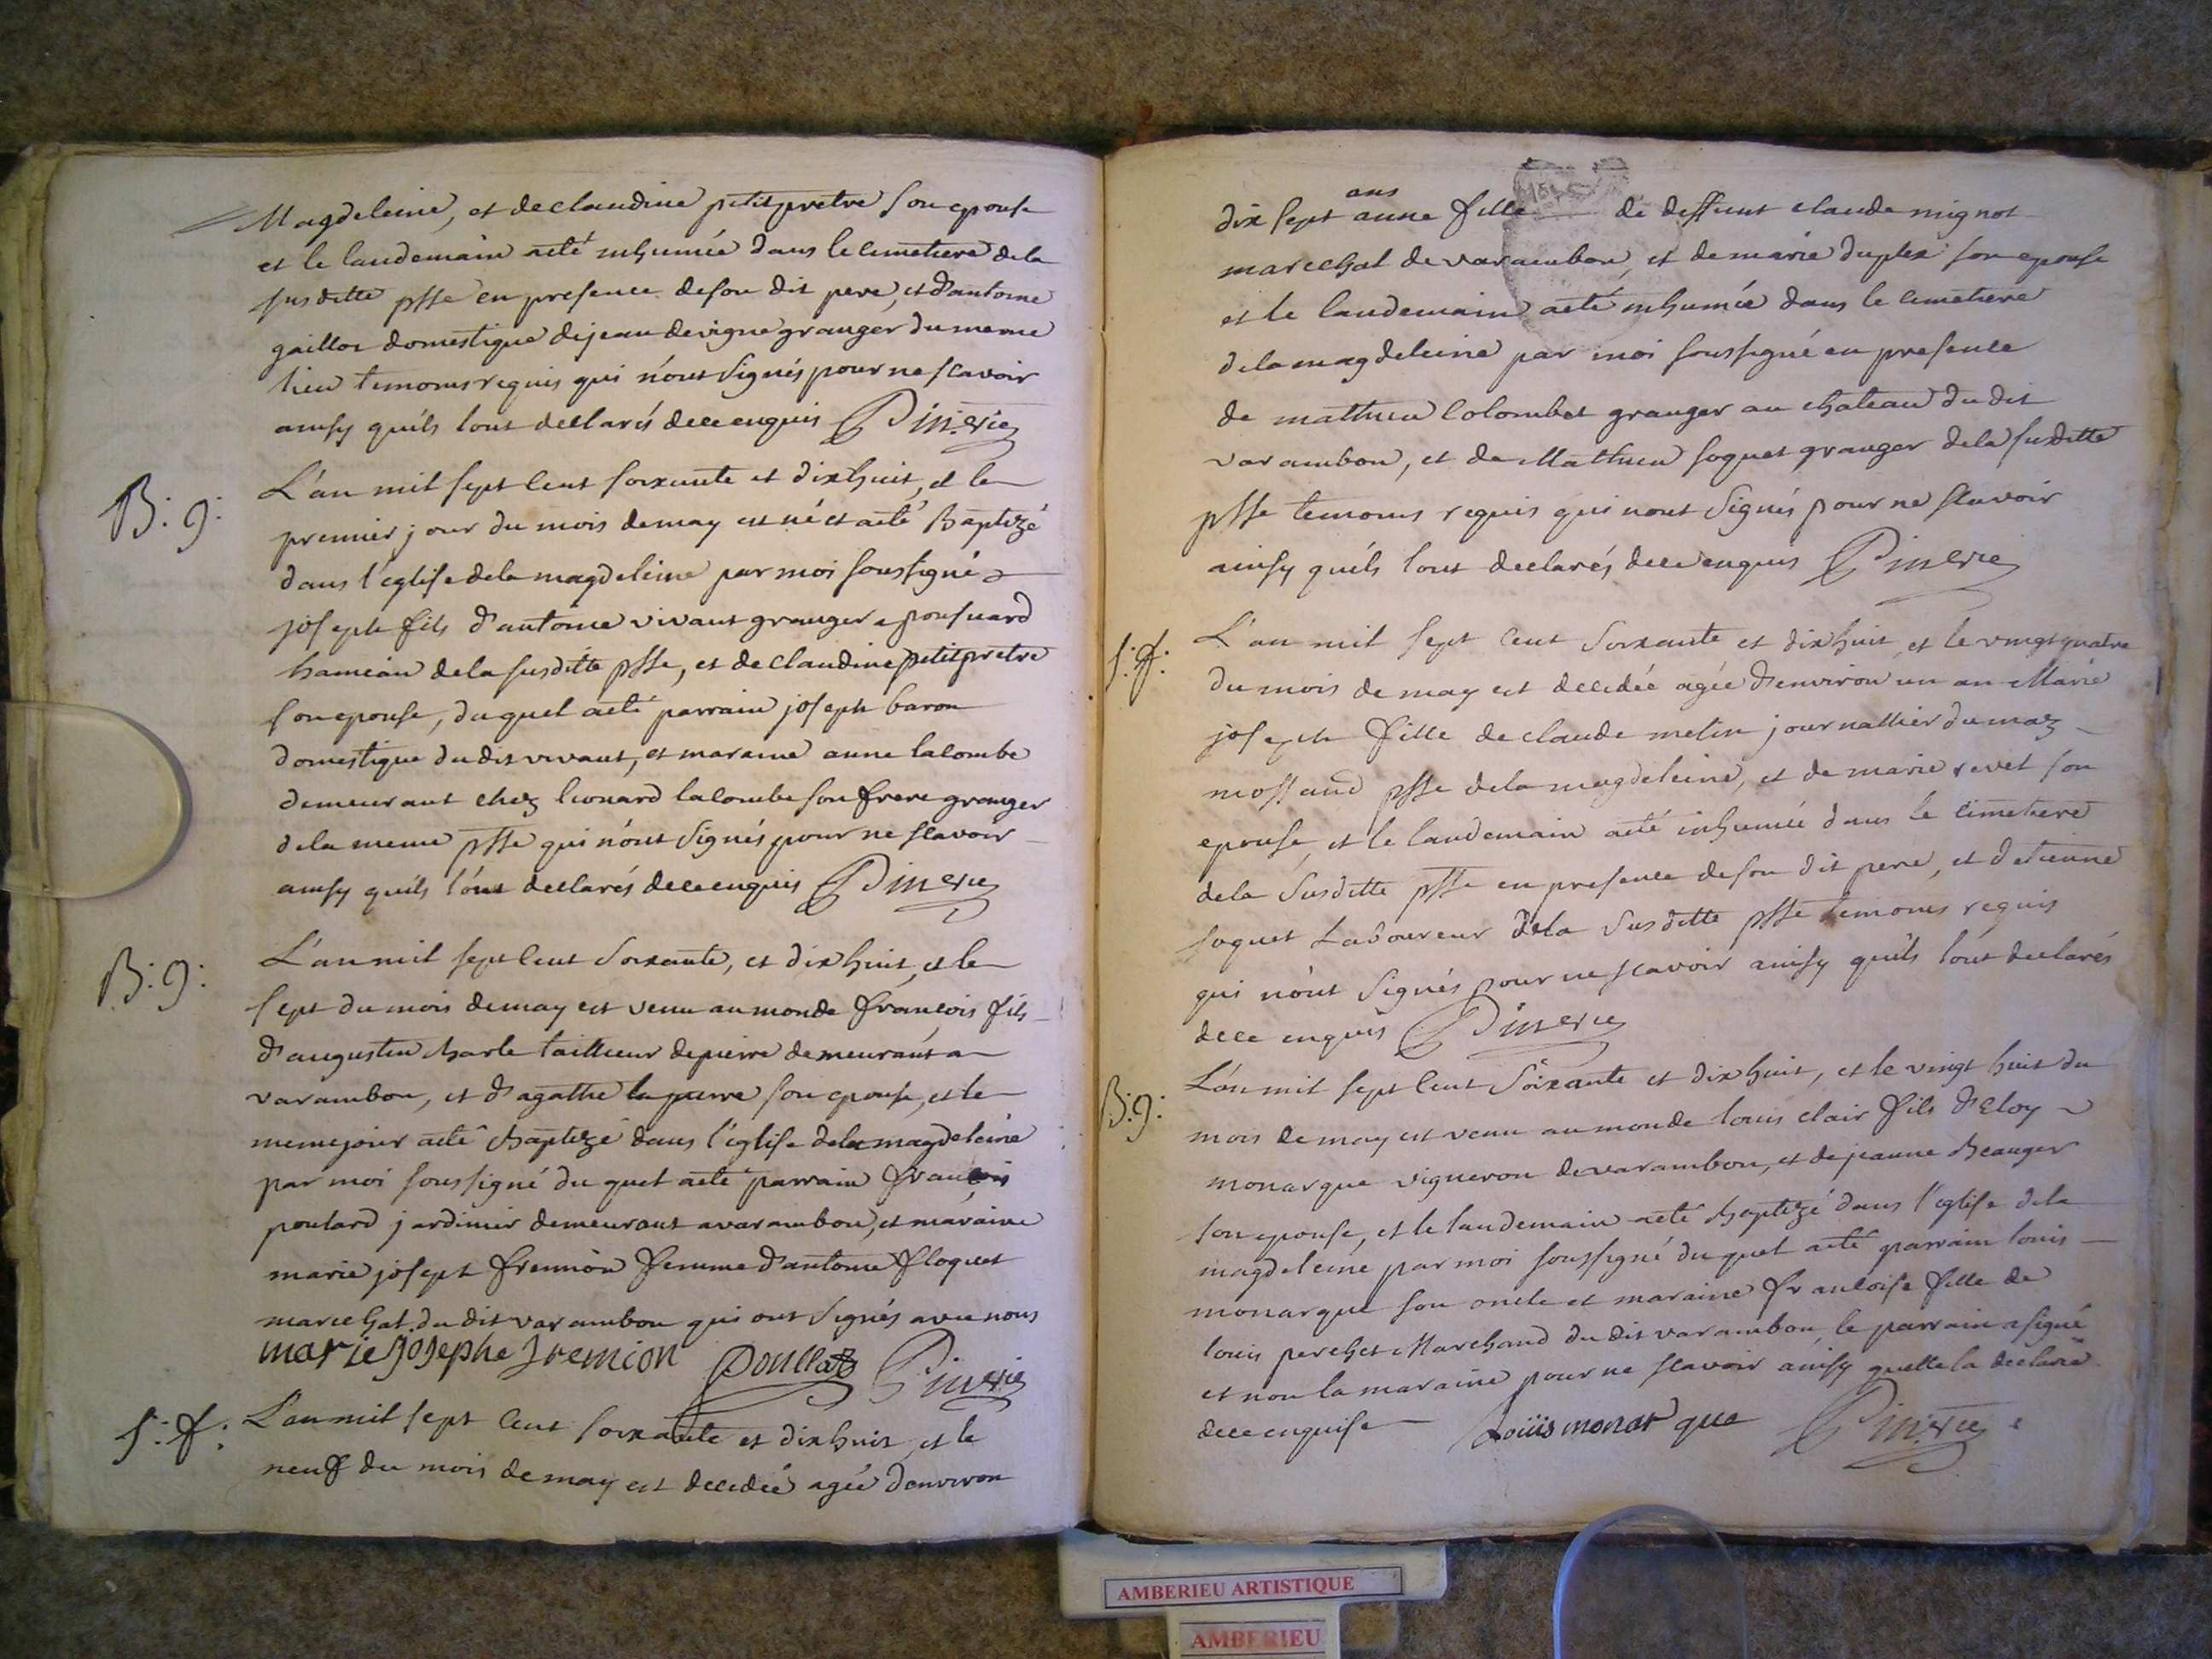 Magdeleine, et de claudine petitpretre son epouse
et le landemain aeté inhumée dans le cimetiere dela
susditte psse en presence deson dit pere, et d'antoine
gaillot domestique dejean devigne granger du meme
lieu temoins requis qui n'ont signés pour ne scavoir
ainsy quils lont declarés dece enquis Pinerie
B: g:
L'an mil sept cent soixante et dixhuit, et le
premier jour du mois demay est né et aeté Baptizé
dans l'eglise dela magdeleine par moi soussigné
joseph fils d'antoine vivant granger a ponsuard
hameau dela susditte psse, et de claudine petitpretre
son epouse, duquel aeté parrain joseph baron
domestique dudit vivant, et maraine anne lacombe
demeurant chez leonard lacombe son frere granger
dela meme psse qui n'ont signés pour ne scavoir
ainsy quils l'ont declarés dece enquis Pinerie
B: g:
L'an mil sept cent soixante, et dixhuit, et le
sept du mois demay est venu au monde françois fils
d'augustin charle tailleur depierre demeurant a
varambon, et d'agathe lapierre son epouse, et le
memejour aeté Baptizé dans l'eglise dela magdeleine
par moi soussigné du quel aeté parrain françois
poulard jardinier demeurant avarambon, et maraine
marie joseph fremion femme d'antoine floquet
marechal du dit varambon qui ont signés avec nous
marie josephe fremion Poullard Pinerie
s: f:
L'an mil sept cent soixante et dixhuit, et le
neuf du mois de may est decedée agée d'environ
dix sept ans anne fille de deffunt claude mignot
marechal devarambon, et demarie duplex son epouse
et le landemain aeté inhumée dans le cimetiere
dela magdeleine par moi soussigné en presence
de mathieu colombet granger au chateau du dit
varambon, et de Mathieu soquet granger dela susditte
psse temoins requis qui nont signés pour ne scavoir
ainsy quils lont declarés dece enquis Pinerie
s: f:
L'an mil sept cent soixante et dixhuit, et le vingtquatre
du mois de may est decedée agée d'environ un an Marie
joseph fille declaude metin journallier dumaz
mossand psse dela magdeleine, et demarie revet son
epouse, et le landemain aeté inhumée dans le cimetiere
dela susditte psse en presence deson dit pere, et detienne
soquet Laboureur dela susditte psse temoins requis
qui n'ont signés pour ne scavoir ainsy quils l'ont declarés
dece enquis Pinerie
B: g:
L'an mil sept cent soixante et dixhuit, et le vingt huit du
mois demay est venu au monde louis clair fils d'Eloy
monarque vigneron devarambon, et dejeanne Beauger
son epouse, et le landemain aeté baptizé dans l'eglise dela
magdeleine par moi soussigné duquel aeté parrain louis
monarque son oncle et maraine françoise fille de
louis perchet Marchand du dit varambon, le parrain asigné
et non la maraine pour ne scavoir ainsy quelle la declaré
dece enquise Loüis monarque Pinerie
AMBERIEU ARTISTIQUE
AMBERIEU